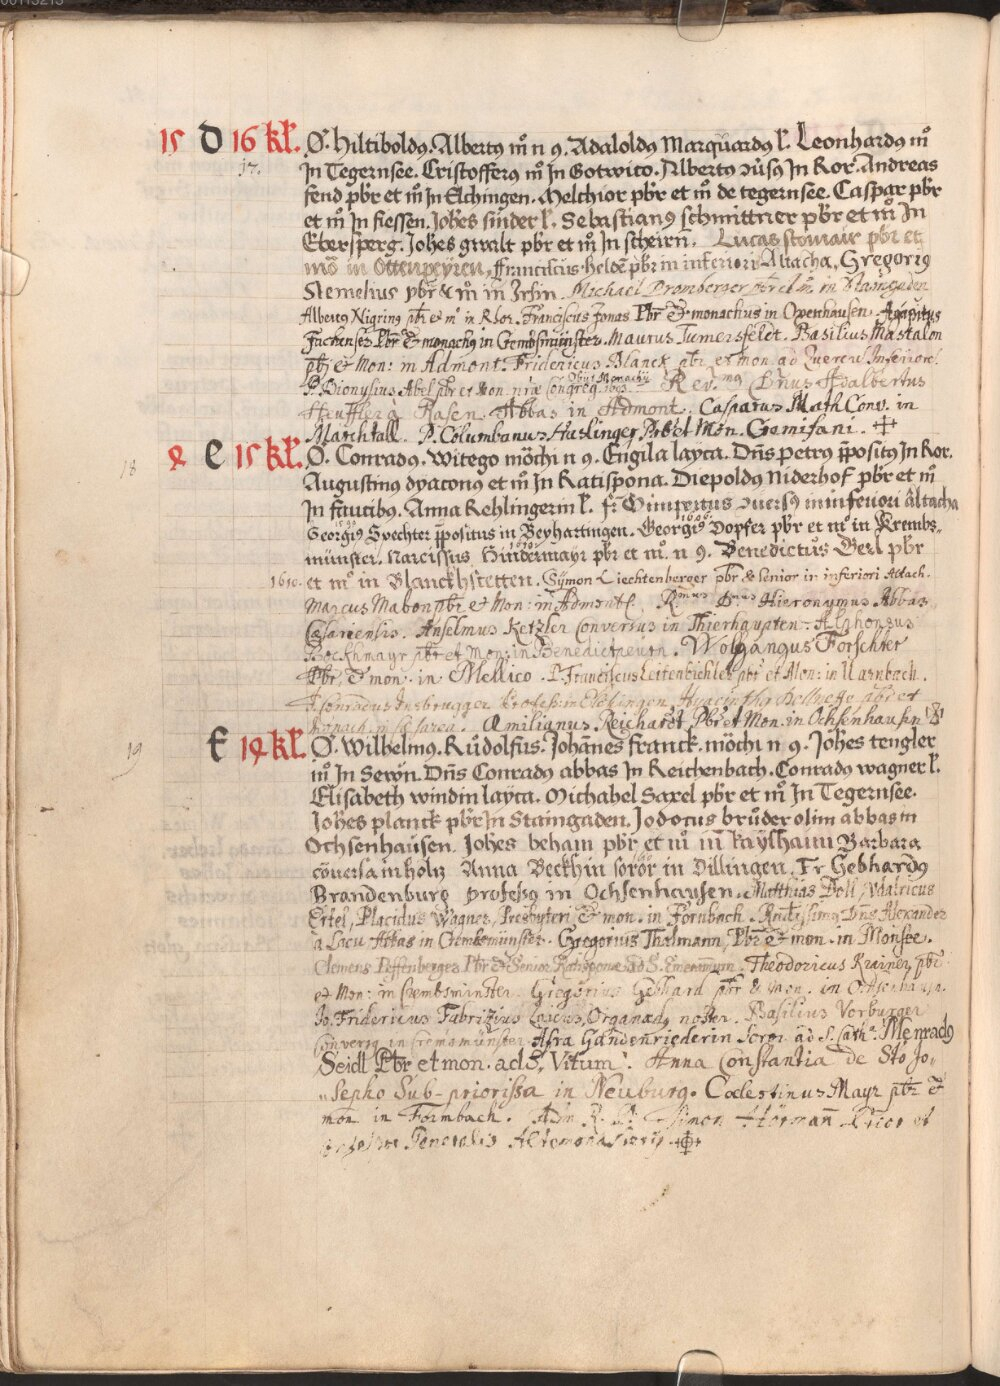 00113215
15 D 16 kł. Ø. Hiltiboldꝰ. Albertꝰ m̊ n ꝯ. Adaloldꝰ Marquardꝰ ł. Leonhardꝰ m̊
17. In Tegernsee. Cristofferꝰ m̊ In Gotwico. Albertꝰ In Ror. Andreas
fend pbr et m̊ In Elchingen. Melchior pbr et m̊ de tegernsee. Caspar pbr
et m̊ In fiessen. Joħes sinder ł. Sebastianꝰ schmittner pbr et m̊ In
Ebersperg. Joħes gwalt pbr et m̊ In scheirn. Lucas stomair pbr et
mō in Ottenpeyren, Franciscus Heldē pbr in inferiori Altacha, Gregoriꝰ
Stemelius pbr & m̊ in Irsin. Michael Bromberger pbr et m̄ in Staingaden
Albertꝰ Nigrinꝰ pbr et m̊ in Rhor. Franciscus Jonas Pbr & monachus in Oxenhausen. Agapitus
Pbr & monachꝰ in Cremsmünster. Maurus Tumersfeldt. Basilius Mastalon
pbr & Mon: in Admont. Fridericus Blanck pbr et mon. ad Quercu Inferiore.
P. Dionysius Abel pbr et Mon. nræ Congreg. Obijt Monachij Rev.mꝰ Dn̄us Adalbertus
Heuffler à Rasen Abbas in Admont. Casparus Math Conv. in
Marchtall. P. Columbanus Haslinger Pr. et Mon. Gemifani. ☩
18 e 15 kł. Ø. Conradꝰ. Witego mōchi n ꝯ. Engila layca. Dn̄s petrꝰ p̄positꝰ In Ror.
Augustinꝰ dyaconꝰ et m̊ In Ratispona. Diepoldꝰ Niderhof pbr et m̊
In faucibꝰ. Anna Rehlingerin ł. fr. in inferiori Altacha
Georgiꝰ Svechter p̄positus in Beyhartingen. Georgiꝰ Dopfer pbr et m̊ in Krembs-
münster. Narcissus Hindermayr pbr et m̊. n ꝯ. Benedictus Gerl pbr
1610. et m̊ in Blanckhstetten. Symon Liechtenberger pbr & senior in inferiori Altach.
Marcus Mabon pbr & Mon: in Admont. R.mus D.nus Hieronymus Abbas
Cæsariensis. Anselmus Ketzler Conversus in Thierhaupten. Alphonsus
Bockhmayr pbr et Mon: in Benedictpeurn. Wolfgangus Forschter
Pbr. & mon. in Mellico. P. Franciscus Leitenbichler pbr et Mon: in Varnbach.
Conradus Insbrugger Profess: in Elchingen. Hyacinthꝰ pbr et
Monach. in Cæsarea. Æmilianus Reichardt Pbr et Mon. in Ochsenhausen
19 F 14 kł. Ø. Wilhelmꝰ. Růdolfus. Johānes franck. mōchi n ꝯ. Joħes tengler
m̊ In Sewn. Dn̄s Conradꝰ abbas In Reichenbach. Conradꝰ wagner ł.
Elisabeth windin layca. Michahel Saxel pbr et m̊ In Tegernsee.
Joħes planck pbr In Staingaden. Jodocus brůder olim abbas in
Ochsenhausen. Joħes beham pbr et m̊ in kaylhaim Barbara
cōuersa in holtz Anna Beckhin soror in Dillingen. Fr Gebhardꝰ
Brandenburg professꝰ in Ochsenhausen. Matthias Doll, Vdalricus
Ertel, Placidus Wagner, Presbyteri & mon. in Fornbach. Dn̄s Alexander
a Lacu Abbas in Cremsmünster. Gregorius Thalmann, Pbr & mon. in Monsee.
Clemens Peffenberger Pbr & Senior Ratisponæ ad S. Emeramum. Theodoricus Krainer, pbr
et Mon: in Cremsminster. Gregorius Gebhard pbr & mon. in Ochsenhausn.
Jo. Fridericus Fabriziꝰ Laicus, Organædꝰ noster. Basilius Vorburger
Conversꝰ in Cremsmünster. Afra Gandenriederin Soror ad S. Cath. Menradꝰ
Seidl Pbr et mon. ad S. Vitum. Anna Constantia de Sto Jo-
sepho Sub-priorissa in Neuburg. Coelestinus Mayr pbr &
mon in Formbach. Adm R. D. Simon Hörmañ Prior et
Generalis ☩